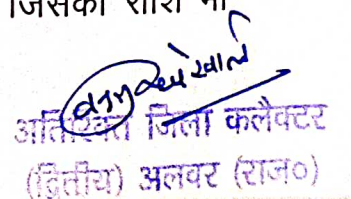 जिसकी राशि
अतिरिक्त जिला कलैक्टर
(द्वितीय) अलवर (राज०)